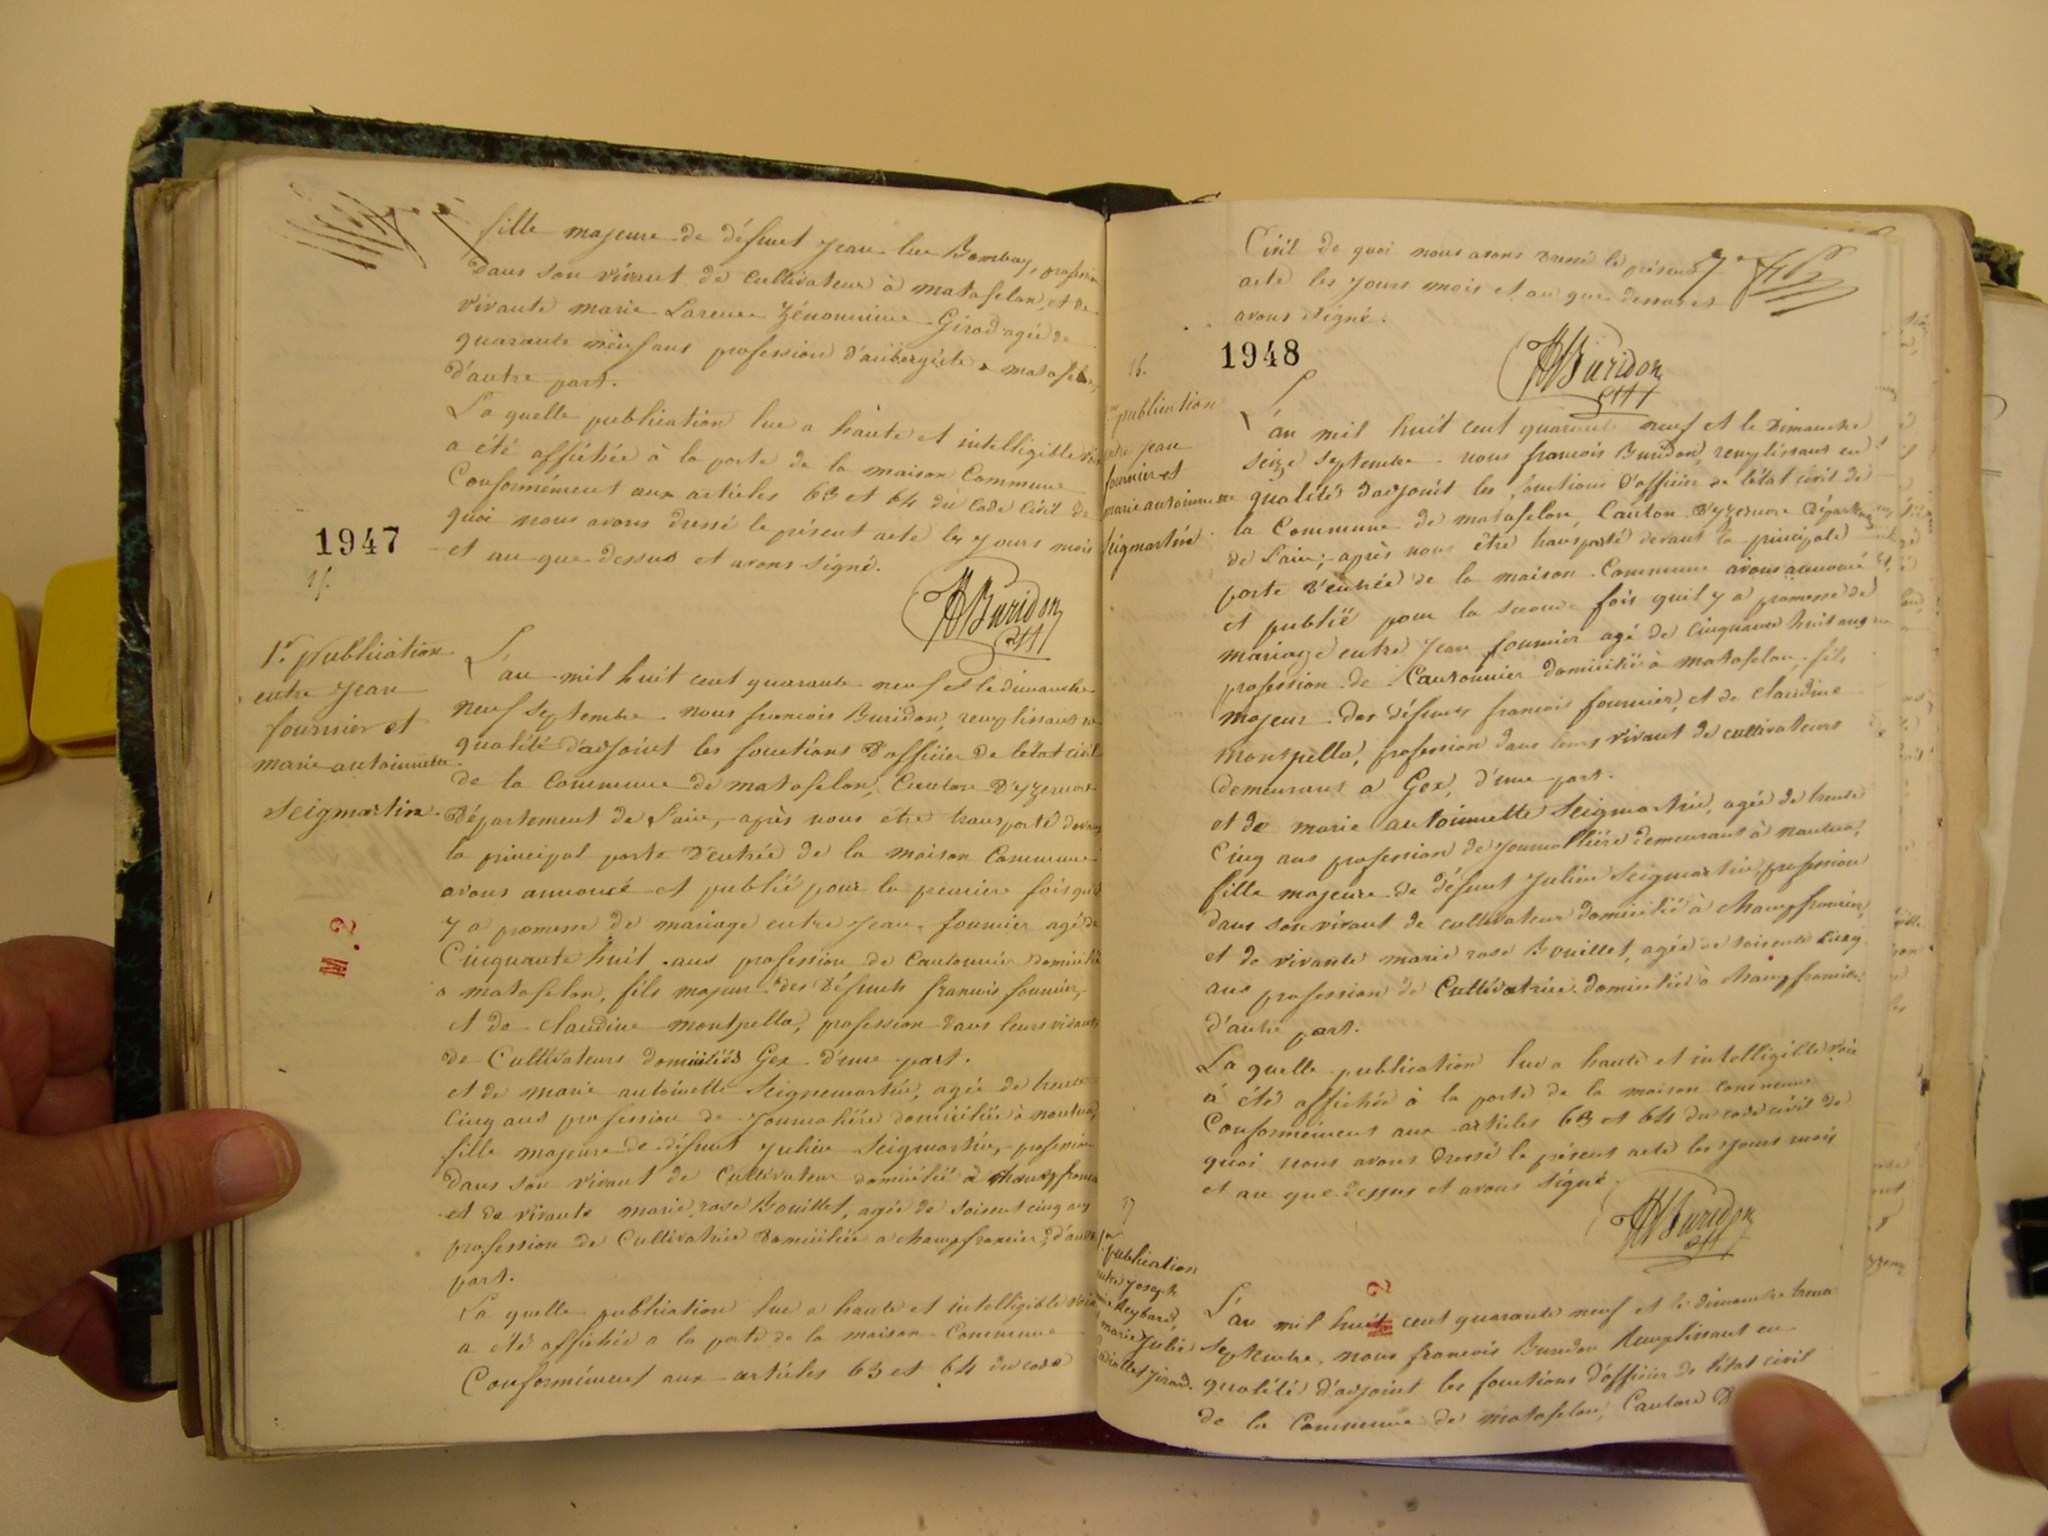 fille majeure de défunt Jean luc Bombay, profession
dans son vivant de cultivateur à matafelon, et de
vivante marie Larence Zénonineu Girod agée de
quarante neuf ans profession d'aubergiste a matafelon,
d'autre part.
La quelle publication lue a haute et intelligible voix
a été affichée à la porte de la maison Commune
Conformément aux articles 63 et 64 du Code Civil de
quoi nous avons dressé le présent acte les jours mois
et an que dessus et avons signé.
1947
15.
Buridon
adjt
1re publication
entre Jean
fournier et
marie antoinnette
Seigmartin.
M. 2
L'an mil huit cent quarante neuf et le dimanche
neuf septembre nous francois Buridon, remplissant en
qualité d'adjoint les fonctions d'officier de l'état civil
de la Commune de matafelon, Canton D'yzernore
Département de L'ain, après nous être transporté devant
la principal porte d'entrée de la maison Commune
avons annoncé et publié pour la premiere fois qu'il
y a promesse de mariage entre Jean fournier agé de
Cinquante huit ans profession de Cantonnier domicilié
a matafelon, fils majeur des Défunts francois fournier,
et de Claudine montpella, profession dans leurs vivants
de Cultivateurs domiciliés Gex d'une part.
et de marie antoinette Seignemartin, agée de trente
Cinq ans profession de Journalière domiciliée à nantua,
fille majeure de défunt Julien Seigmartin, profession
dans son vivant de Cultivateur domicilié à Champfromier
et de vivante marie rose Bouillet, agée de soixent cinq ans
profession de Cultivatrice Domiciliée a champfromier, d'autre
part.
La quelle publication lue a haute et intelligible voix
a été affichée a la porte de la maison Commune
Conformément aux articles 63 et 64 du code
Civil de quoi nous avons dressé le présent
acte les jours mois et an que dessus et
avons signé.
1948
Buridon
adjt
16.
publication
entre jean
fournier et
marie antoinnette
Seigmartin
L'an mil huit cent quarante neuf et le Dimanche
seize septembre nous francois Buridon, remplissant en
qualité d'adjoint les fonctions d'officier de l'état civil de
la Commune de matafelon, Canton D'yzernore Département
de L'ain; après nous être transporté devant la principale
porte d'entrée de la maison Commune avons annoncé
et publié pour la seconde fois qu'il y a promesse de
mariage entre Jean fournier agé de cinquante huit ans
profession de Cantonnier domicilié à matafelon, fils
majeur des défunts francois fournier, et de Claudine
montpella, profession dans leurs vivant de cultivateurs
demeurans a Gex, d'une part.
et de marie antoinnette Seigmartin, agée de trente
Cinq ans profession de journallière demeurant à nantua,
fille majeure de défunt Julien Seigmartin, profession
dans son vivant de cultivateur domicilié à Champfromier,
et de vivante marie rose Bouillet, agée de soixente cinq
ans profession de Cultivatrice domiciliée à Champfromier
d'autre part.
La quelle publication lue a haute et intelligible voix
à été affichée à la porte de la maison commune
Conformément aux articles 63 et 64 du code civil de
quoi nous avons dressé le présent acte les jours mois
et an que dessus et avons signé.
Buridon
adjt
17
1re
publication
entre Joseph
Reybard,
marie Julie
Girod.
M. 2
L'an mil huit cent quarante neuf et le dimanche trente
septembre, nous francois Buridon Remplissant en
qualité d'adjoint les fonctions d'officier de l'état civil
de la Commune de matafelon, Canton D